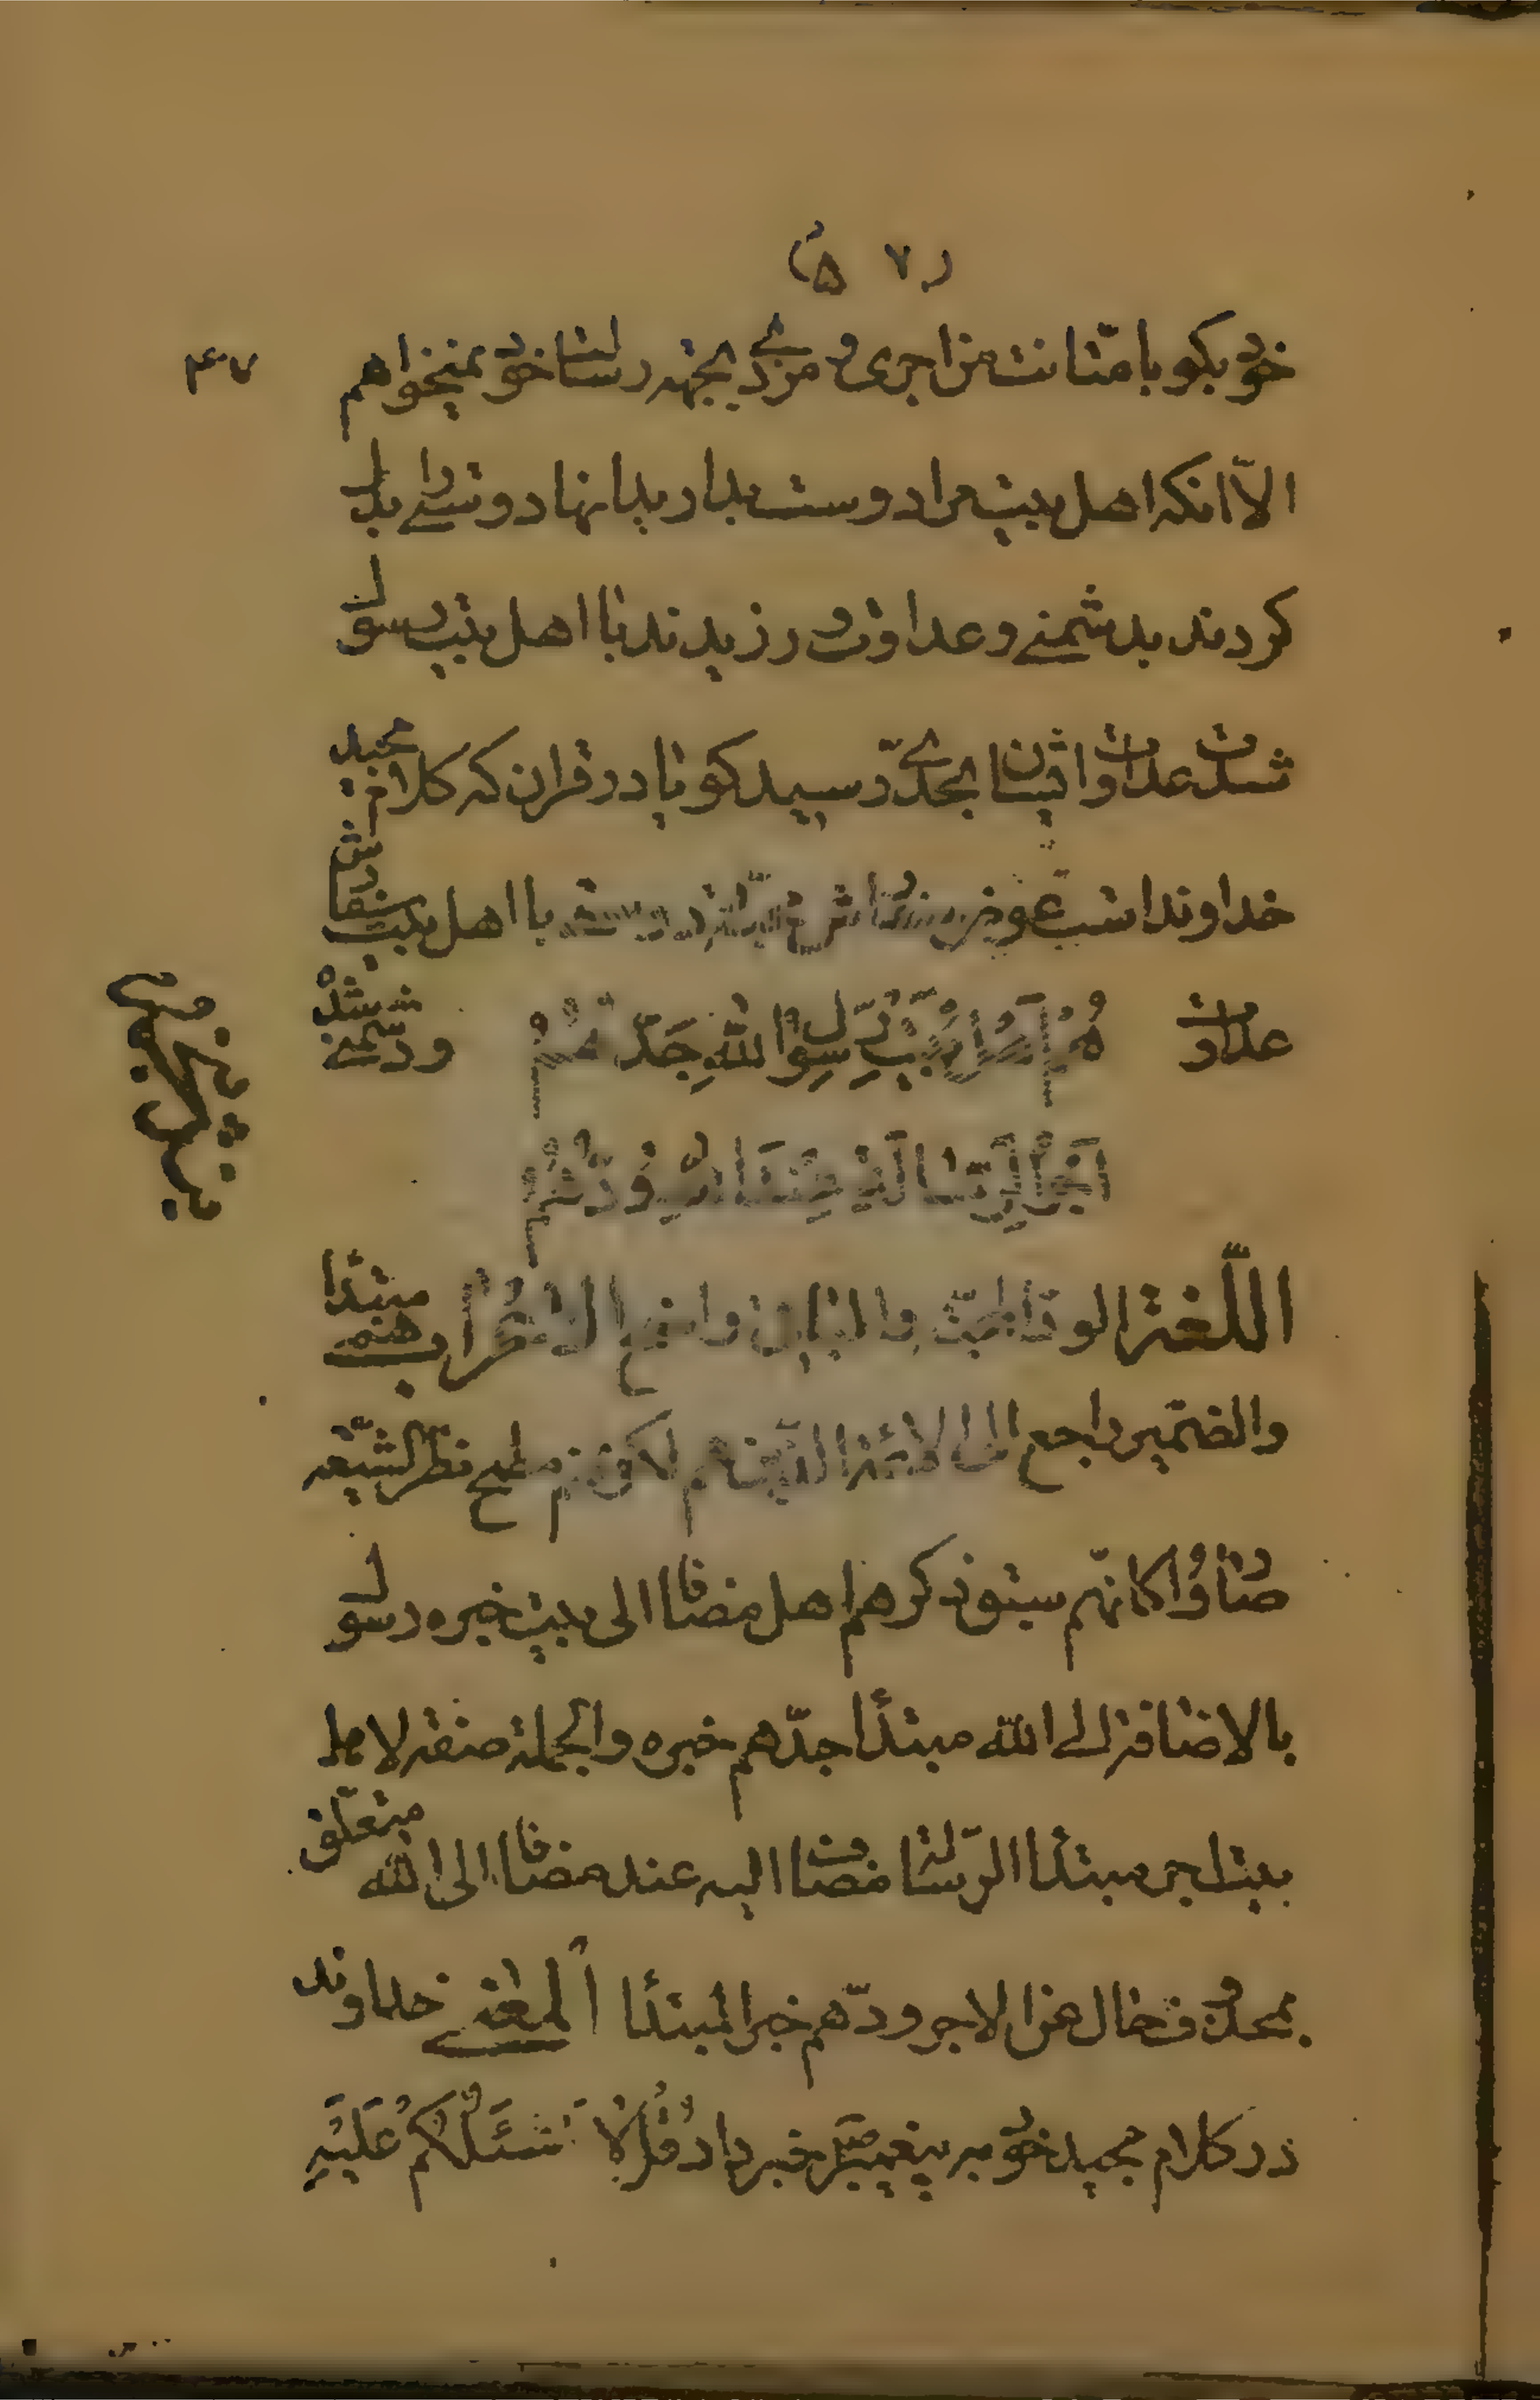 (۵ ۷)
۴۷
خود بکو بامتانت من اجری و مزدی بجهة رسالت خود نمیخواهم
الا انکه اهل بیت مرا دوست بدارید بانها دوستی را بدل
کردند بدشمنی و عداوت ورزیدند با اهل بیت رسول
شدت عداوت ایشان بحدی رسید کویا در قران که کلام مجید
خداوند است عوض دوستی با اهل بیت سفارش
عداوت ودشمنی شده
هُمْ اَهْلُ بَيْتِ رَسُولِ اللهِ جَدّهُمْ
اَجْرُ الرِّسَالَةِ عِنْدَ اللهِ وُدّهُمْ
اللّغة الود المحبّة والبیان واضح الاعراب هم مبتدأ
والضمیر راجع الی الائمة لکونهم مطمح نظر الشیعة
صاروا کانهم سبق ذکرهم اهل مضافا الی بیت خبره رسول
بالاضافة الی الله مبتدأ جدّهم خبره والجملة صفة لاهل
بیت اجر مبتدأ الرسالة مضاف الیه عند مضافا الی الله متعلق
بمحذوف حال من الاجر ودّهم خبر المبتدأ المعنی خداوند
در کلام مجید خود به پیغمبر خبر داد قُلْ لا اَسْئَلُکُمْ عَلَیْهِ